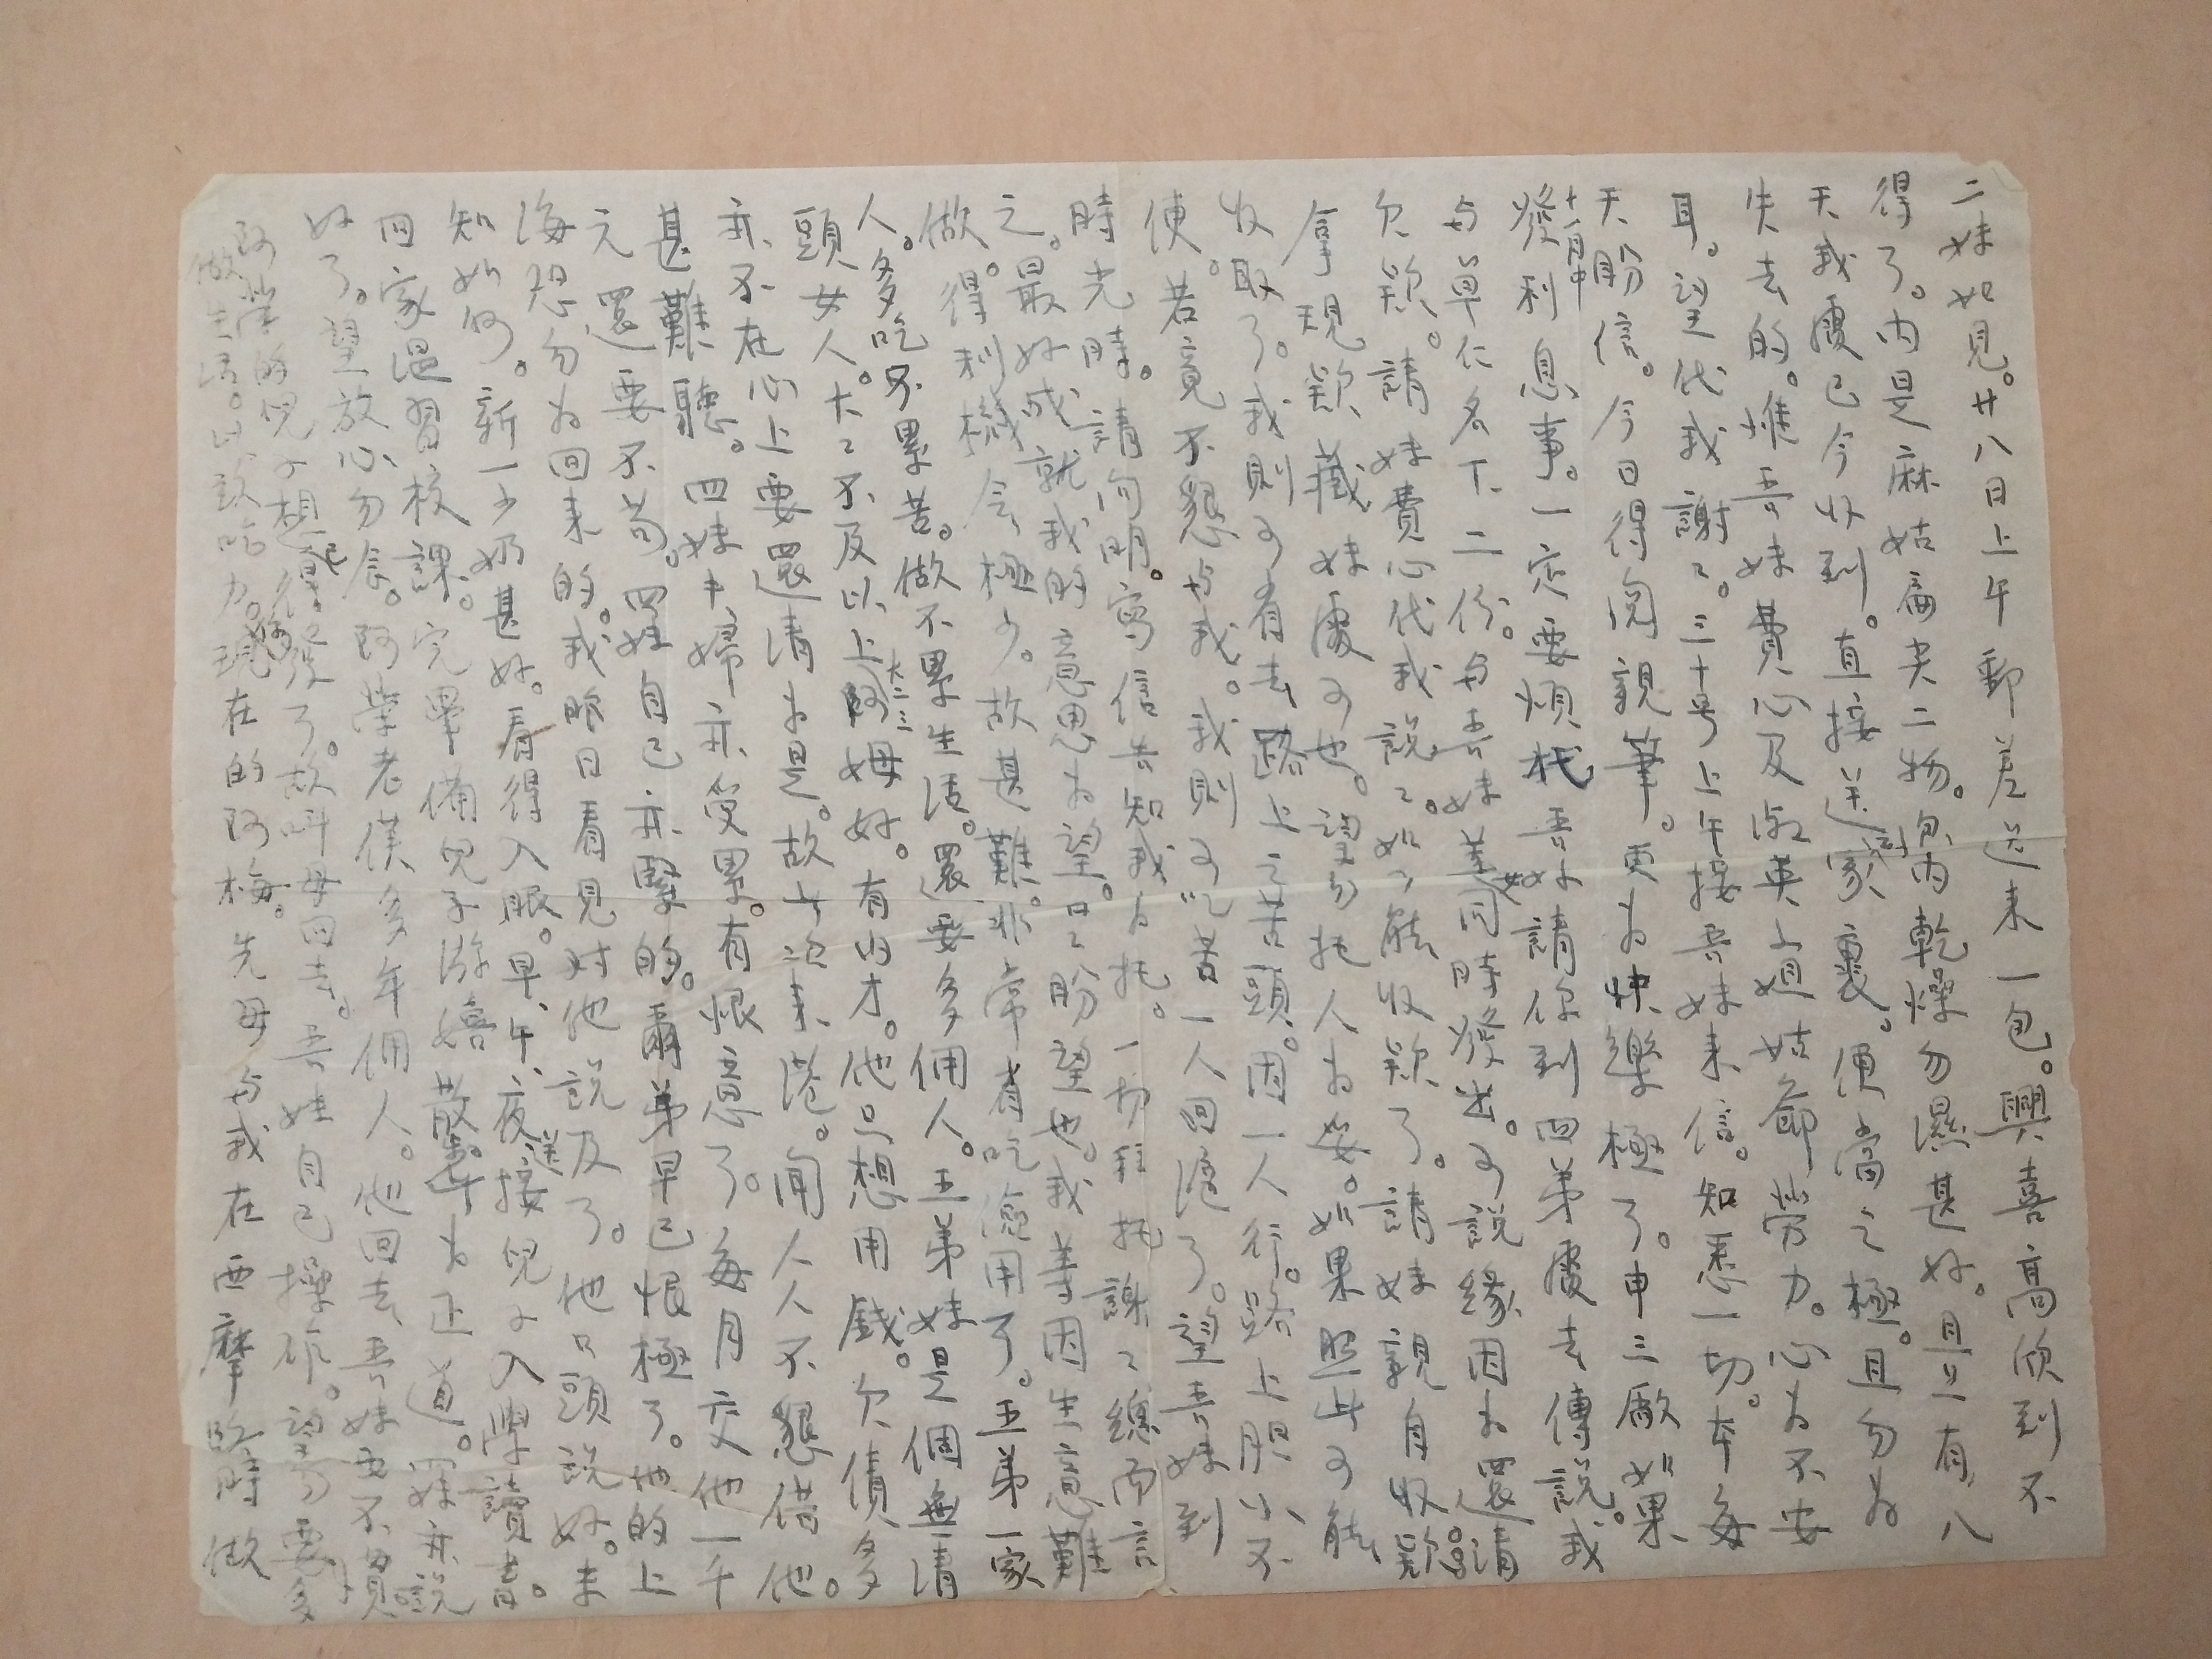 二妹如見。廿八日上午郵差送來一包。興喜高欣到不
得了。內是麻姑扁尖二物。包內乾燥勿濕甚好。且有八
天我處已今收到。直接送到家裏。便當之極。且勿为
失去的。惟吾妹費心及英姑爺勞力。心为不安
耳。望代我謝〻。三十号上午接吾妹來信。知悉一切。本每
天盼信。今日得閱親筆。更为快樂極了。申三廠如果
十一月中發利息事。一定要煩托吾妹請你到四弟處去傳說。我
与單仁名下二份。与吾妹等同時發出。可說緣因为還清
欠款。請妹費心代我說〻。如能收款了。請妹親自收款。
拿現款藏妹處可也。望勿托人为妥。如果照此可能
收取了。我則可有去路上之苦頭。因一人行。路上胆小不
便。若竟不懇与我。我則可吃苦一人回滬了。望吾妹到
時光時。請向明。寫信告知我为托。一切拜托謝〻總而言
之。最好成就我的意思为望。日〻盼望也。我等因生意難
做。得利機会極少。故甚難。非常省吃愈用了。五弟一家
人。多吃不累苦。做不累生活。還要多佣人。五弟妹是個無清
頭女人。大〻不及以上大二三阿姆好。有內才。他只想用錢。欠債多
亦不在心上要還清为是。故此次來港。聞人人不懇借他。
甚難聽。四妹丰婦亦受累。有恨意了。每月交他一千
元還要不夠。四妹自己亦緊的。爾弟早已恨極了。他的上
海恐勿为回來的。我昨日看見对他說及了。他口頭說好。未
知如何。新一少奶甚好。看得入眼。早、午、夜、接送兒子入學讀書。
回家溫習校課。完畢備兒子游嬉散步为正道。妹亦說
好了。望放心勿念。阿榮老僕多年佣人。他回去吾妹要不慣
阿榮的兒子想得已沒了。故叫母回去。吾妹自己操作。望勿要多
做生活。以致吃力。現在的阿梅。先母与我在西摩路時做